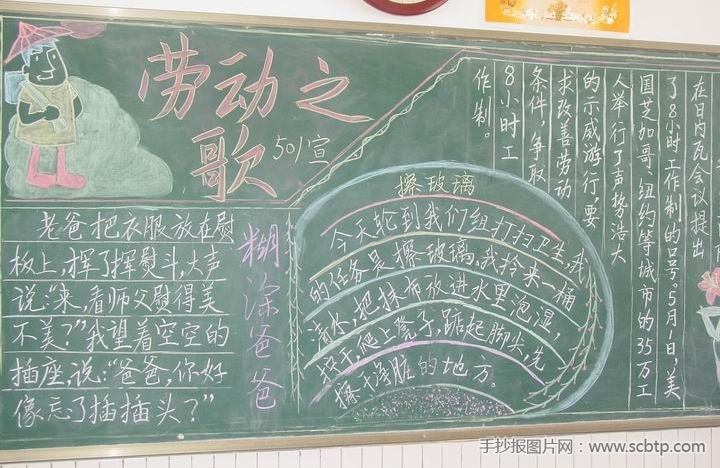 劳动之
歌 501宣
老爸把衣服放在慰
板上,挥了挥熨斗,大声
说:“来,看师父慰得美
不美?”我望着空空的
插座,说:“爸爸,你好
像忘了插插头?”
糊涂爸爸
擦玻璃
今天轮到我们组打扫卫生,我
的任务是擦玻璃。我拎来一桶
清水,把抹布放进水里泡湿,
拧干,爬上凳子,踮起脚尖,先
擦干净脏的地方。
在日内瓦会议提出
了8小时工作制的口号。5月1日,美
国芝加哥、纽约等城市的35万工
人举行了声势浩大
的示威游行,要
求改善劳动
条件,争取
8小时工
作制。
手抄报图片网:www.scbtp.com